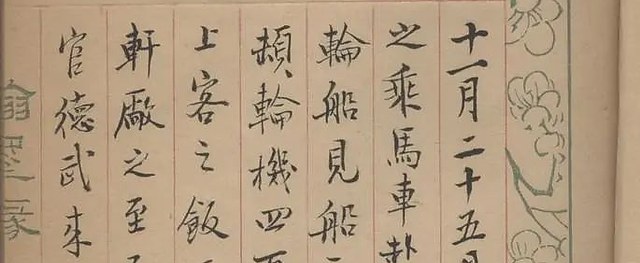 十一月二十五
之乘馬車
輪船見船
頓輪機四
上客之飯
軒厰之至
官德武来
翰墨緣